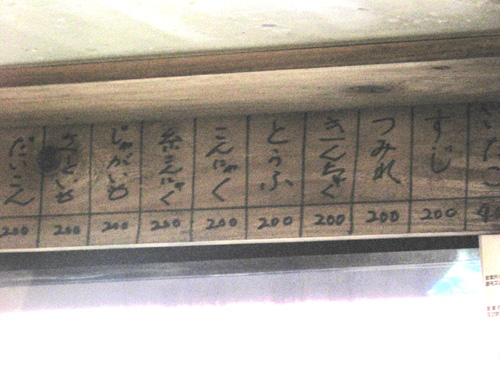 すじ
200
つみれ
200
きんちゃく
200
とうふ
200
こんにゃく
200
糸こんにゃく
200
じゃがいも
200
さといも
200
だいこん
200